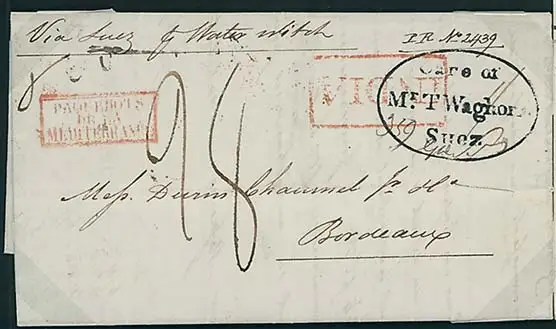 Via Suez p Water witch
P.P. No 2439
PAQUEBOTS
DE LA
MEDITERRANEE
INDIA
Care of
Mr. T Waghorn
Suez
28
Mess. Chaumel
Bordeaux